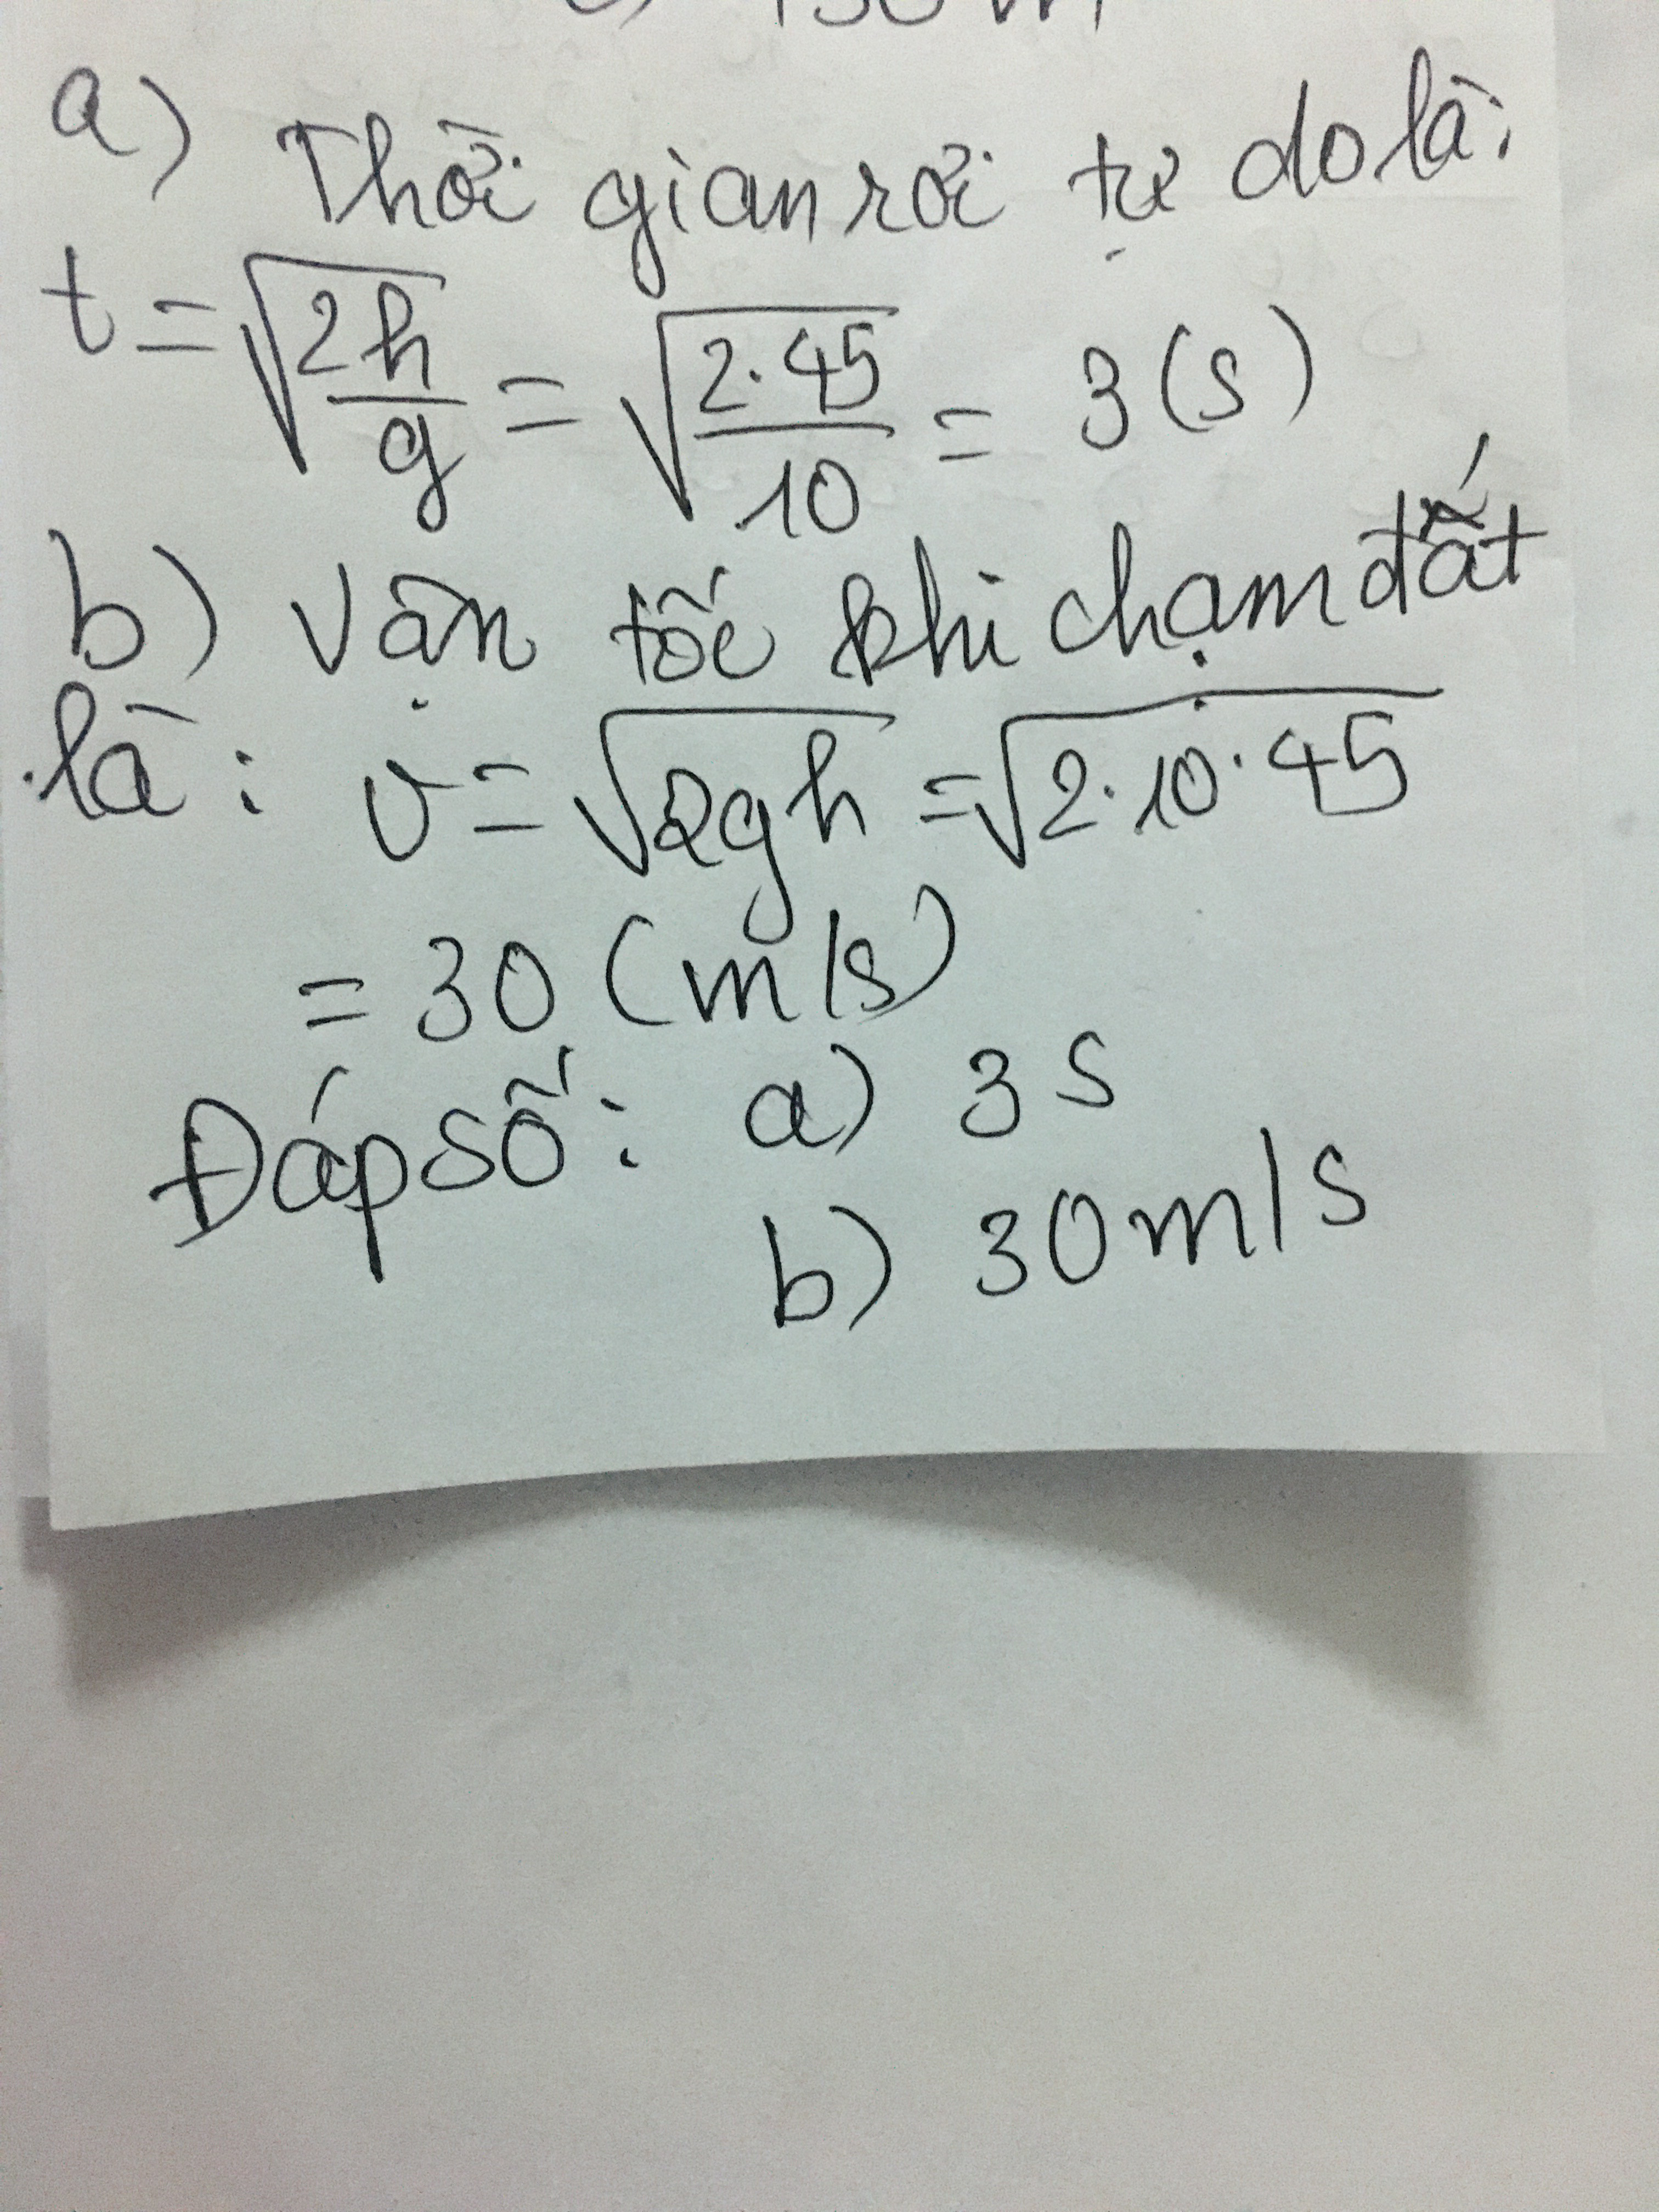 a) Thời gian rơi tự do là:
t = √(2h/g) = √(2.45/10) = 3 (s)
b) Vận tốc khi chạm đất
là: v = √(2gh) = √(2.10.45)
= 30 (m/s)
Đáp số: a) 3s
b) 30m/s